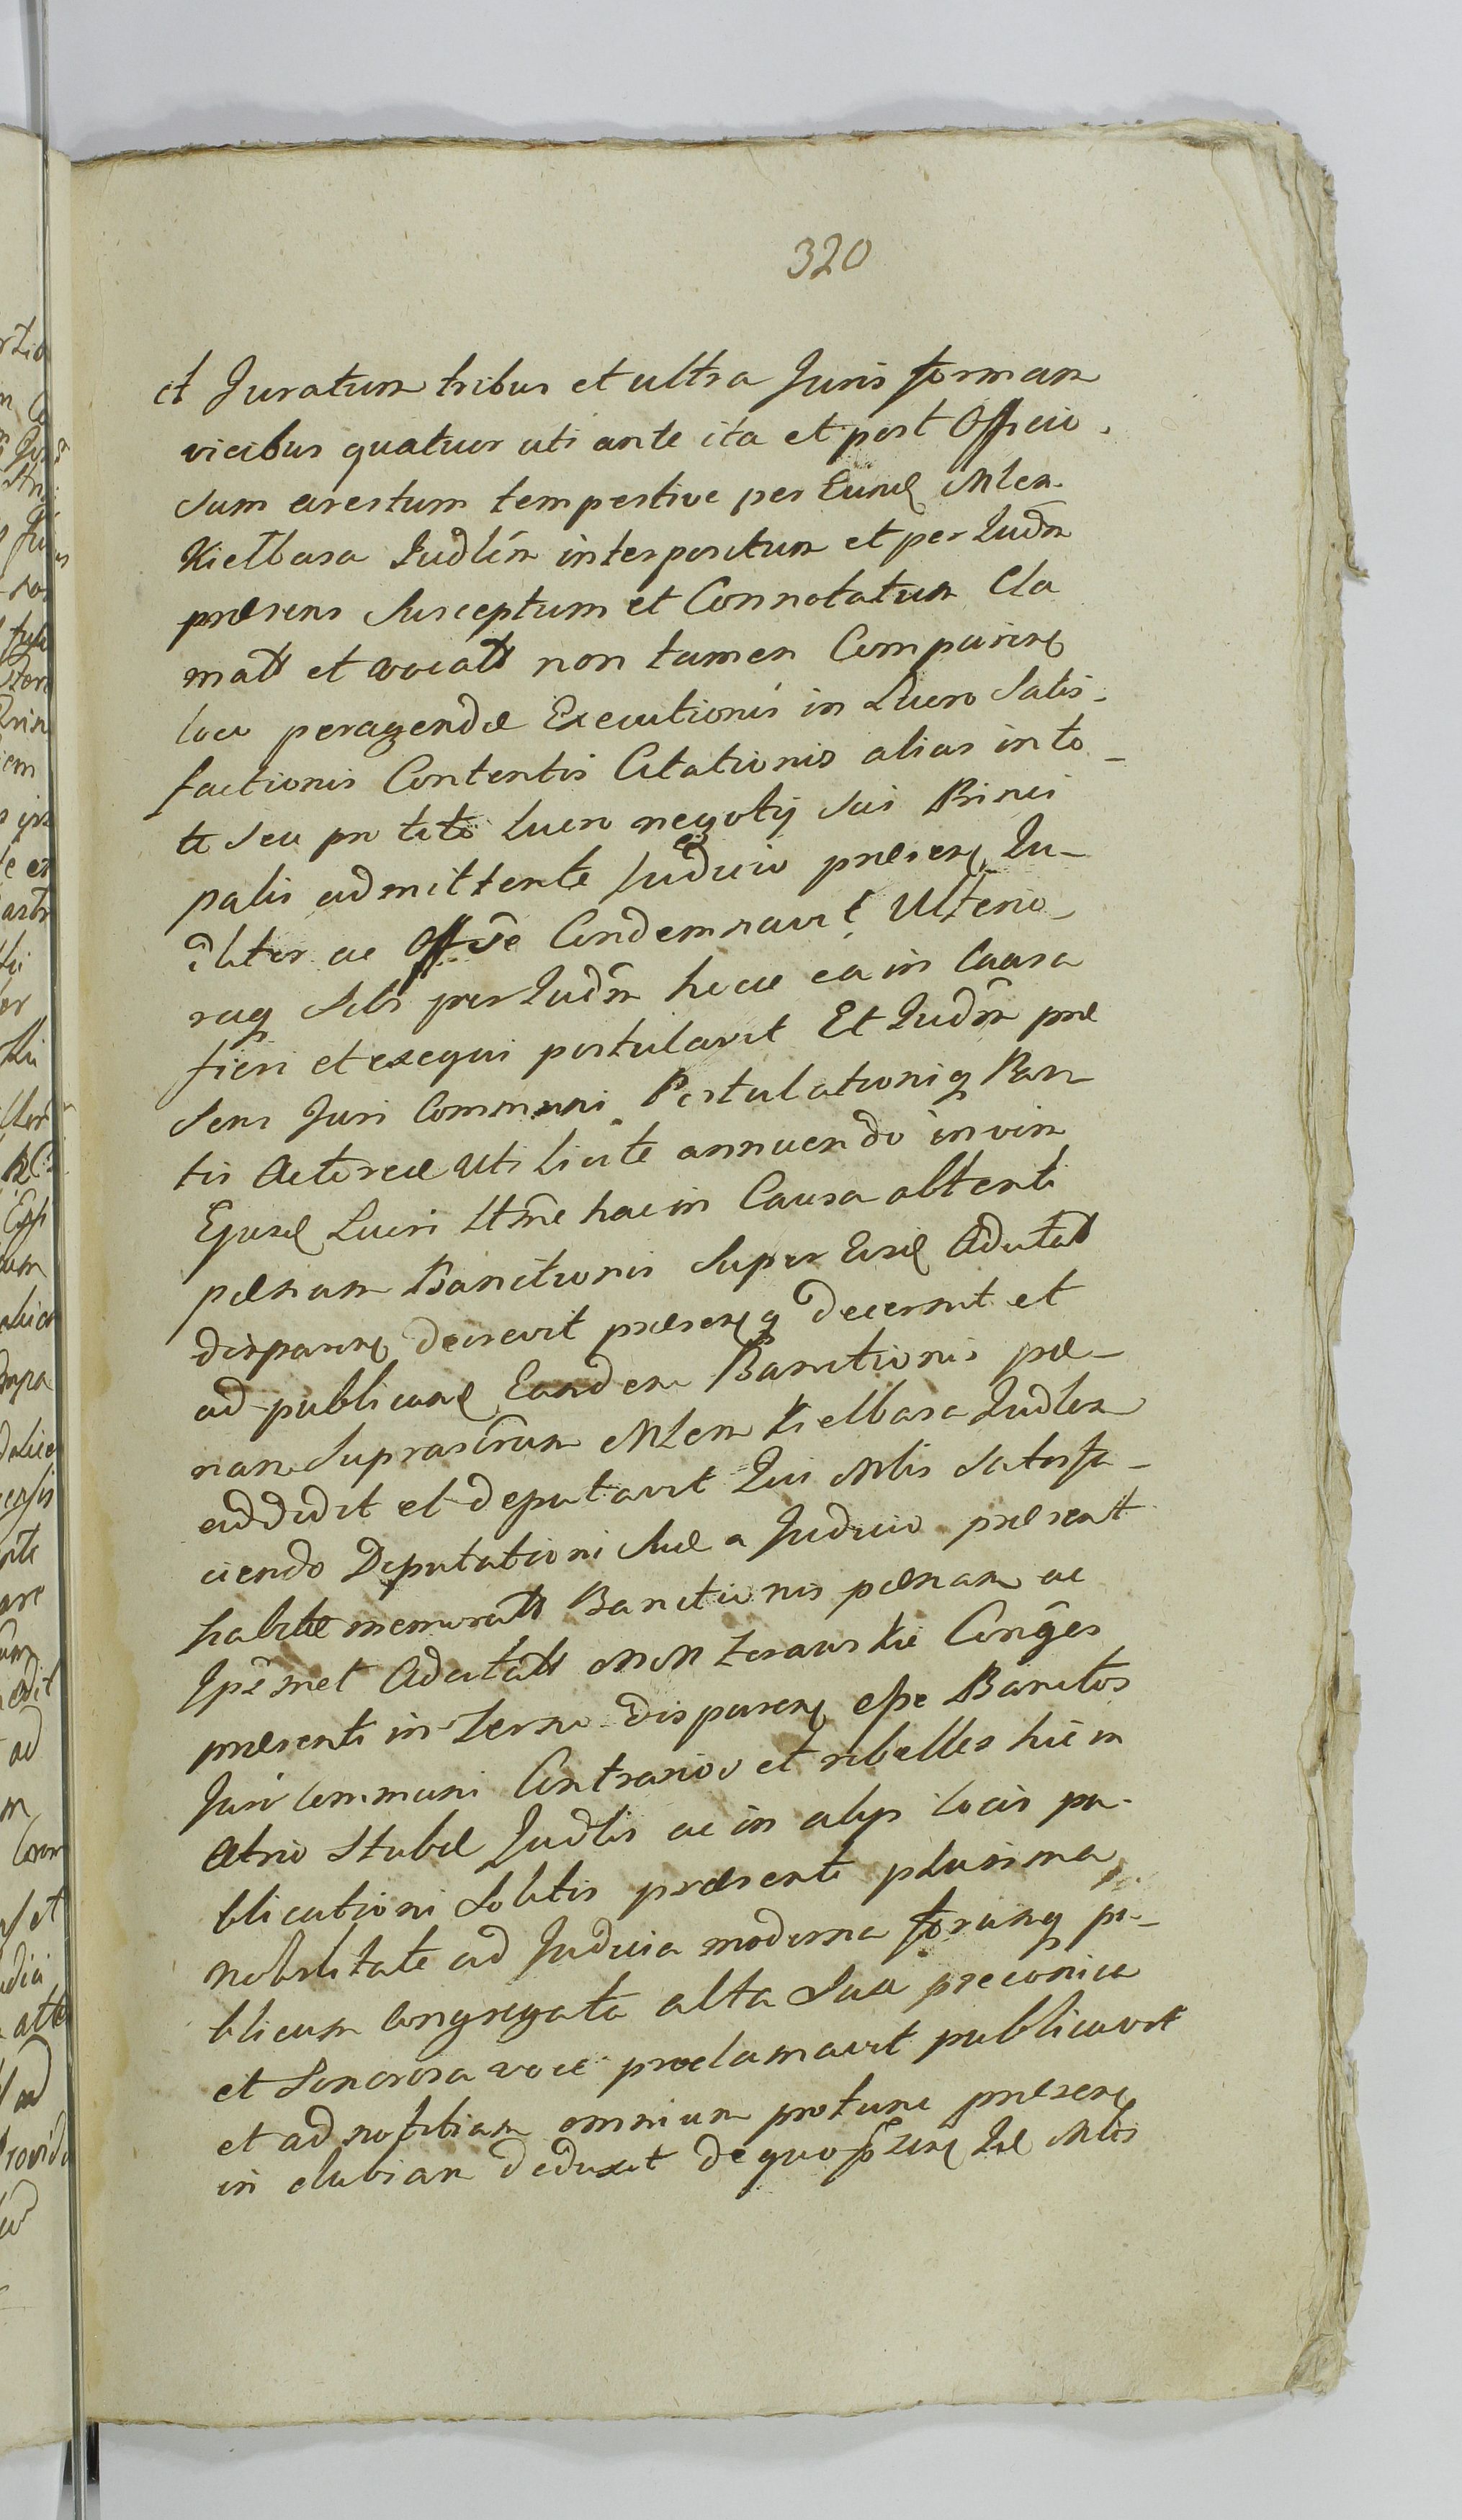 320
et Juratum tribus et ultra Juris formam
vicibus quatuor uti ante ita et post Officio
sum arestum tempestive per Eund Mlem
Kiełbasa Judlem interpositum et per Judm
præsens Susceptum et Connotatum Cla
matt et vocatt non tamen Comparen
loco peragendæ Executionis in Lucro Satis-
factionis Contentis Citationis alias in to-
to seu pro toto lucro negotij sui Princi
palis admittente Judicio præsen Ju-
dlitr ac Offose Condemnavit Ulterio
raq Sibi per Judm hocce ea in Causa
fieri et exequi postulavit Et Judm præ
sens Juri Communi Postulationiq Par
tis Actoreæ uti licite annuendo in vim
Ejusd Lucri Itme hac in Causa obtenti
pænam Banitionis super Eisd Adcitatt
disparen decrevit præsenq decernit et
ad publicand Eandem Banitionis pæ-
nam suprascrum Mlem Kiełbasa Judlem
addidit et deputavit Qui Mlis Satisfa-
ciendo Deputationi suæ a Judicio præsent
habitæ memoratt Banitionis pænam ac
Ipsmet Adcitatt MM Conges
præsenti in Termo disparen esse Banitos
Juri communi Contrarios et rebelles hic in
Atrio Stubæ Judlis ac in alijs locis pu-
blicationi Solitis præsente plurima
nobilitate ad Judicia moderna forumq pu-
blicum Congregata alta sua preconica
et Sonorosa voce proclamavit publicavit
et ad notitiam omnium protunc præsen
in dubian deduxit de quo Mlis